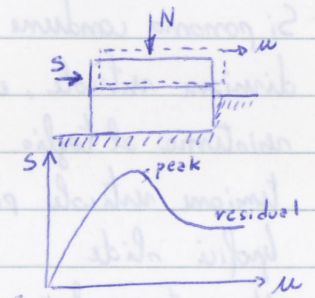 N
u
S
S
peak
residual
u